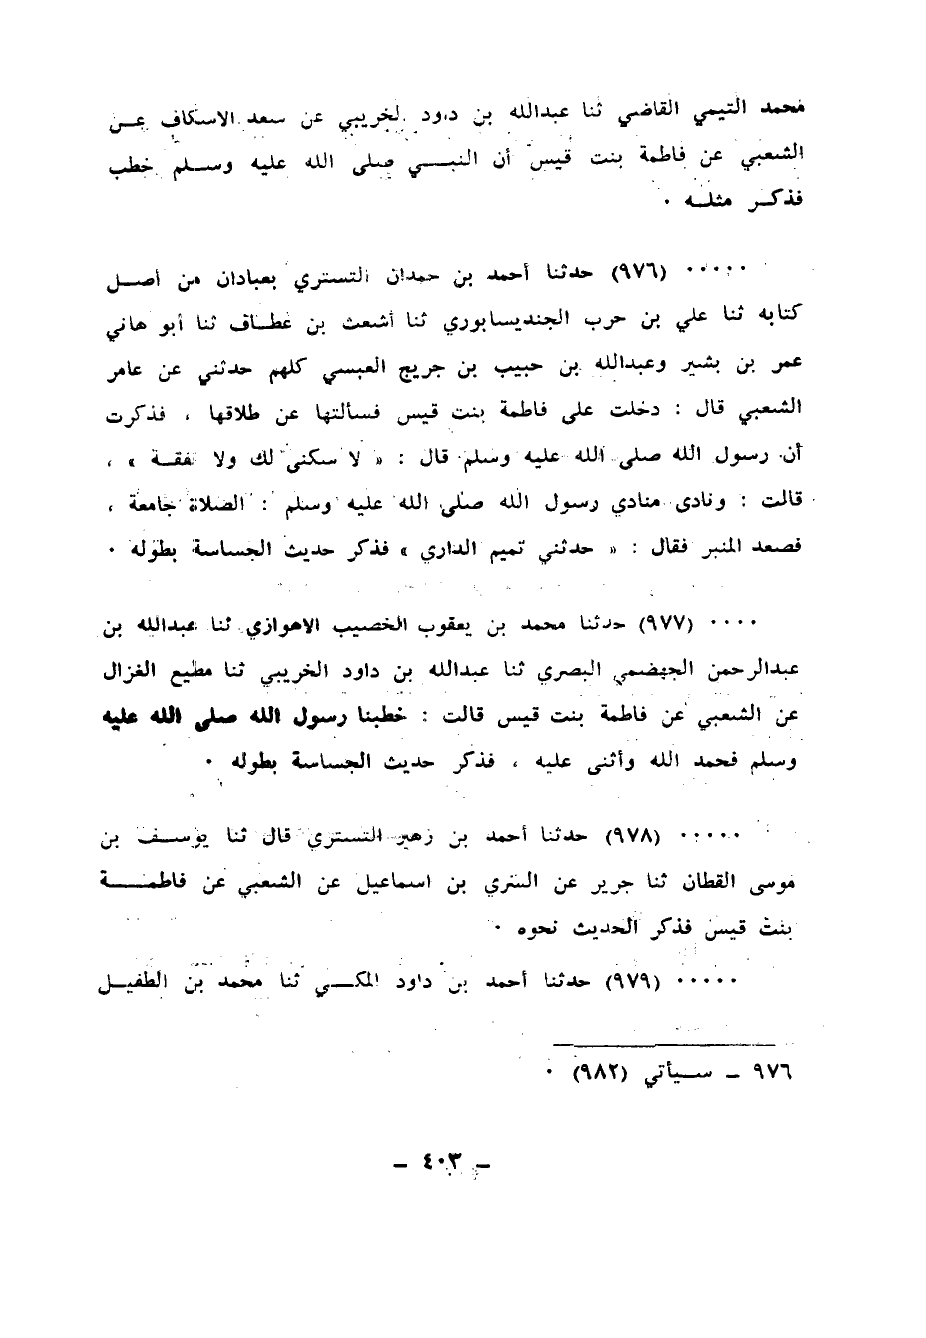 محمد التيمي القاضي ثنا عبدالله بن داود الخريبي عن سعد الاسكاف عــن
الشعبي عن فاطمة بنت قيس أن النبــي صلى الله عليه وســلم خطب
فذكــر مثلــه ٠
٠٠٠٠٠ (٩٧٦) حدثنا أحمد بن حمدان التستري بعبادان من أصــل
كتابه ثنا علي بن حرب الجنديسابوري ثنا أشعث بن عطــاف ثنا أبو هاني
عمر بن بشير وعبدالله بن حبيب بن جريج العبسي كلهم حدثني عن عامر
الشعبي قال : دخلت على فاطمة بنت قيس فسألتها عن طلاقها ، فذكرت
أن رسول الله صلى الله عليه وسلم قال : « لا سكنى لك ولا نفقــة » ،
قالت : ونادى منادي رسول الله صلى الله عليه وسلم : الصلاة جامعة ،
فصعد المنبر فقال : « حدثني تميم الداري » فذكر حديث الجساسة بطوله ٠
٠٠٠٠ (٩٧٧) حدثنا محمد بن يعقوب الخصيب الاهوازي ثنا عبدالله بن
عبدالرحمن الجهضمي البصري ثنا عبدالله بن داود الخريبي ثنا مطيع الغزال
عن الشعبي عن فاطمة بنت قيس قالت : خطبنا رسول الله صلى الله عليه
وسلم فحمد الله وأثنى عليه ، فذكر حديث الجساسة بطوله ٠
٠٠٠٠٠ (٩٧٨) حدثنا أحمد بن زهير التستري قال ثنا يوســف بن
موسى القطان ثنا جرير عن السري بن اسماعيل عن الشعبي عن فاطمــــة
بنت قيس فذكر الحديث نحوه ٠
٠٠٠٠٠ (٩٧٩) حدثنا أحمد بن داود المكــي ثنا محمد بن الطفيــل
٩٧٦ ــ ســيأتي (٩٨٢) ٠
ــ ٤٠٣ ــ